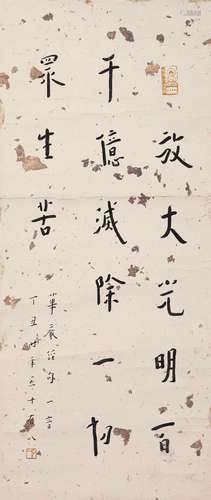 放大光明百
千億滅除一切
眾生苦
華嚴經句一音
丁丑時年五十有八